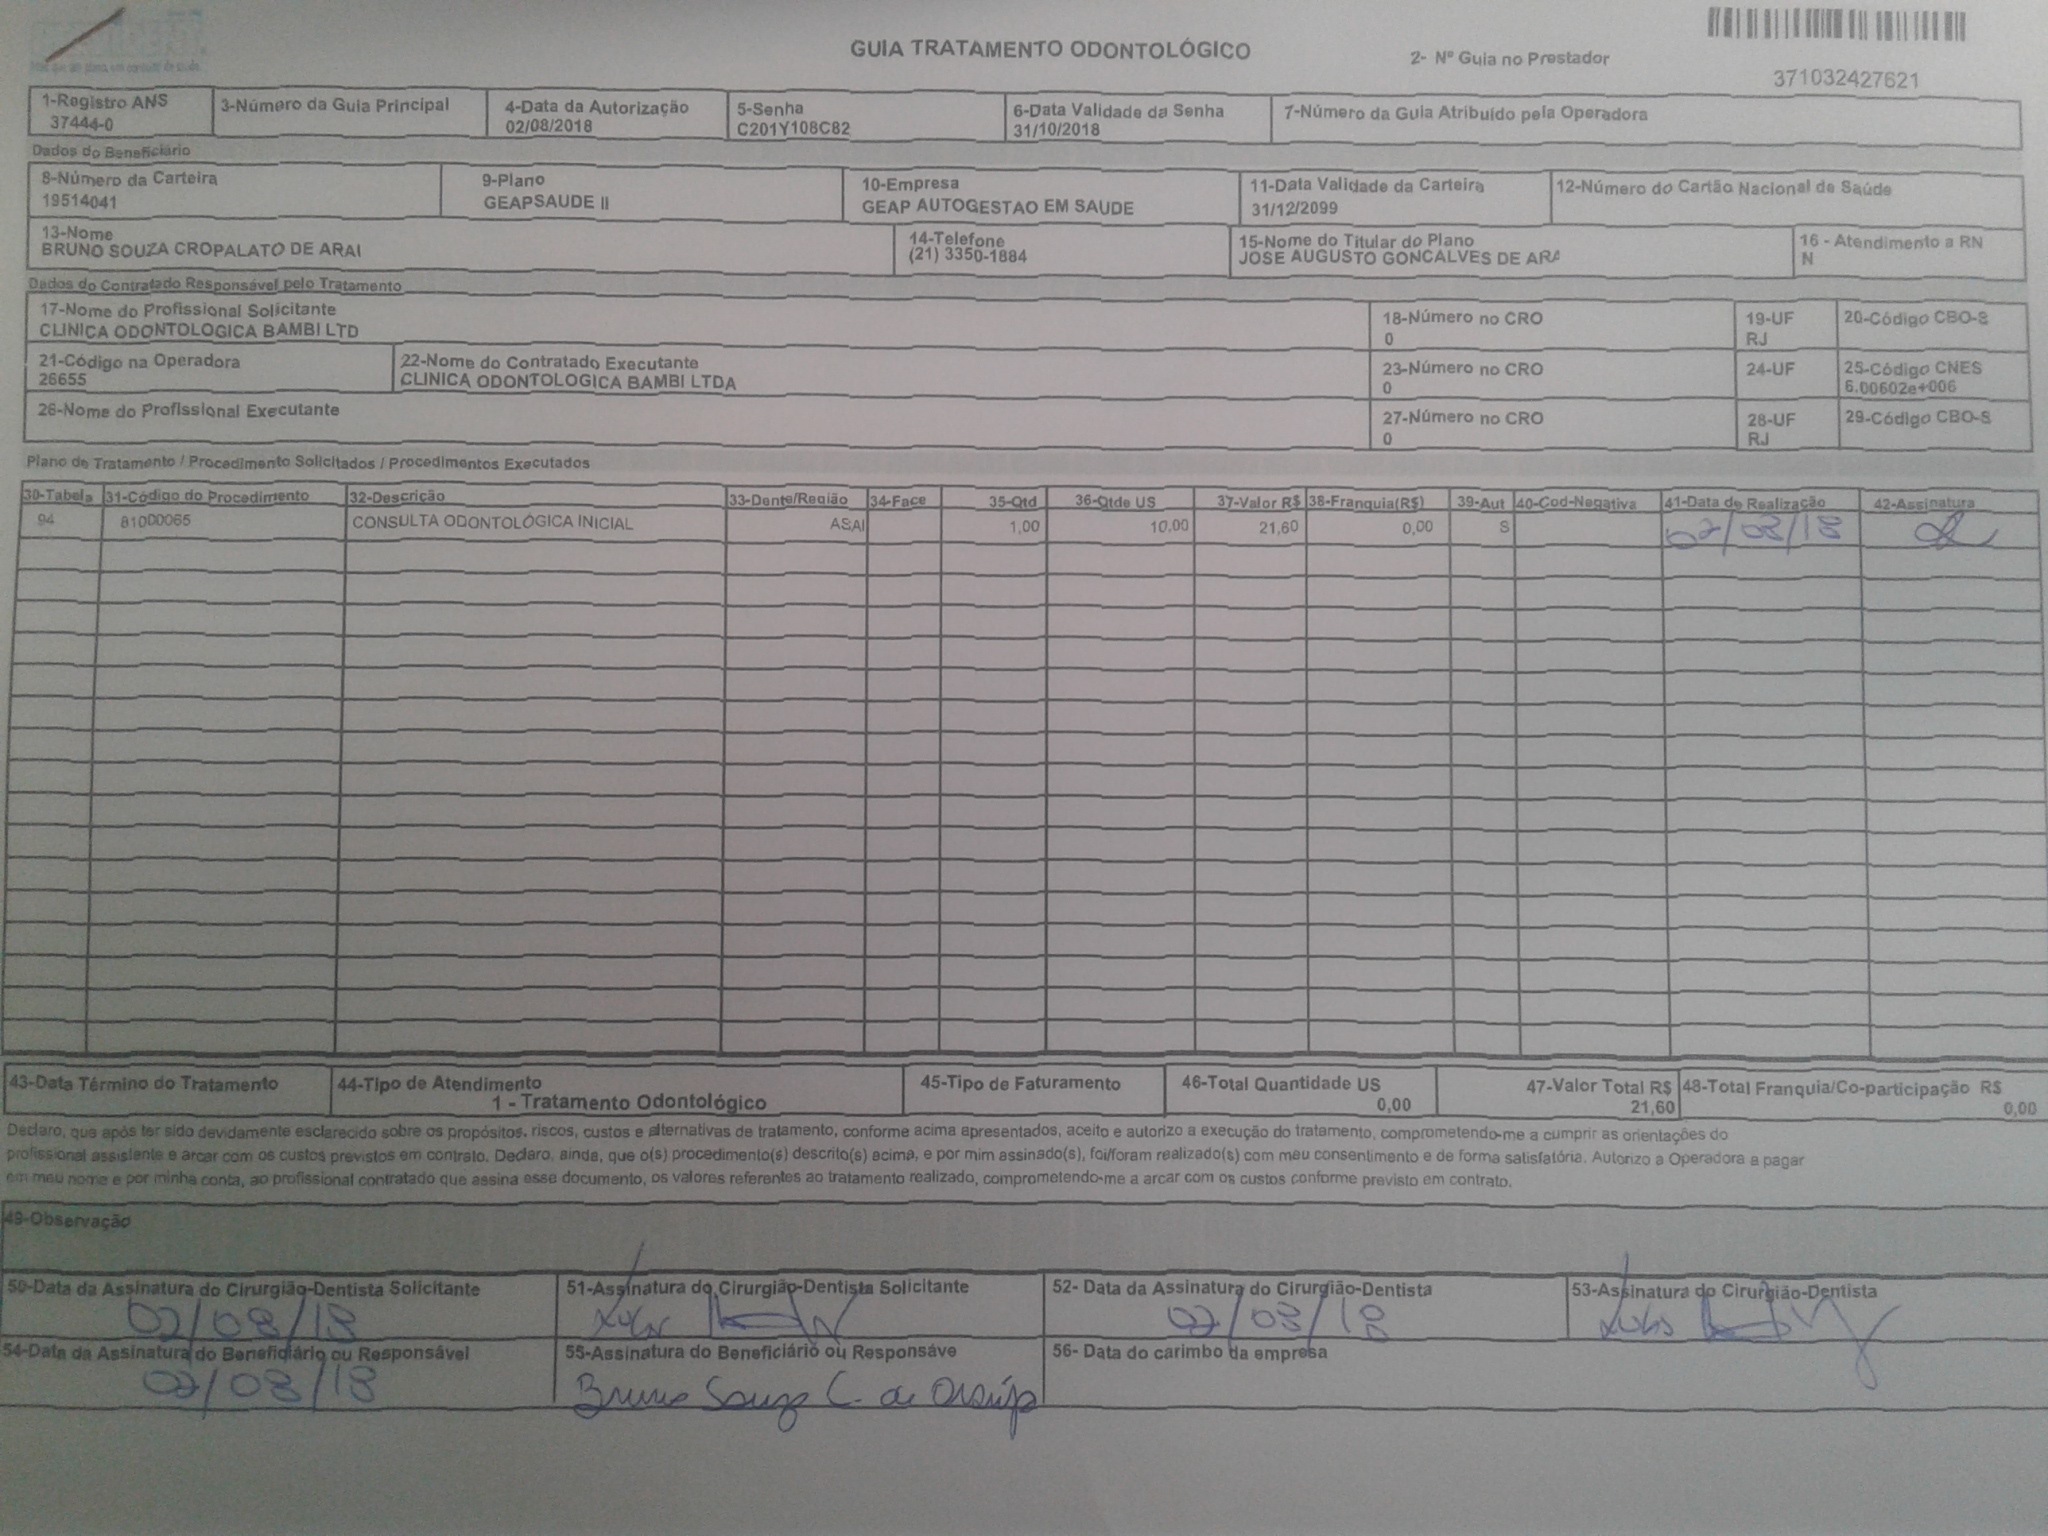 GUIA TRATAMENTO ODONTOLÓGICO
2- Nº Guia no Prestador
371032427621
1-Registro ANS
37444-0
3-Número da Guia Principal
4-Data da Autorização
02/08/2018
5-Senha
C201Y108C82
6-Data Validade da Senha
31/10/2018
7-Número da Guia Atribuído pela Operadora
Dados do Beneficiário
8-Número da Carteira
19514041
9-Plano
GEAPSAUDE II
10-Empresa
GEAP AUTOGESTAO EM SAUDE
11-Data Validade da Carteira
31/12/2099
12-Número do Cartão Nacional de Saúde
13-Nome
BRUNO SOUZA CROPALATO DE ARAI
14-Telefone
(21) 3350-1884
15-Nome do Titular do Plano
JOSE AUGUSTO GONCALVES DE ARA
16 - Atendimento a RN
N
Dados do Contratado Responsável pelo Tratamento
17-Nome do Profissional Solicitante
CLINICA ODONTOLOGICA BAMBI LTD
18-Número no CRO
0
19-UF
RJ
20-Código CBO-S
21-Código na Operadora
26655
22-Nome do Contratado Executante
CLINICA ODONTOLOGICA BAMBI LTDA
23-Número no CRO
0
24-UF
25-Código CNES
6.00602e+006
26-Nome do Profissional Executante
27-Número no CRO
0
28-UF
RJ
29-Código CBO-S
Plano de Tratamento / Procedimento Solicitados / Procedimentos Executados
30-Tabela 31-Código do Procedimento 32-Descrição 33-Dente/Região 34-Face 35-Qtd 36-Qtde US 37-Valor R$ 38-Franquia(R$) 39-Aut 40-Cod-Negativa 41-Data de Realização 42-Assinatura
94 81000065 CONSULTA ODONTOLÓGICA INICIAL ASAI 1,00 10,00 21,60 0,00 S 02/08/18
43-Data Término do Tratamento
44-Tipo de Atendimento
1 - Tratamento Odontológico
45-Tipo de Faturamento
46-Total Quantidade US
0,00
47-Valor Total R$
21,60
48-Total Franquia/Co-participação R$
0,00
Declaro, que após ter sido devidamente esclarecido sobre os propósitos, riscos, custos e alternativas de tratamento, conforme acima apresentados, aceito e autorizo a execução do tratamento, comprometendo-me a cumprir as orientações do
profissional assistente e arcar com os custos previstos em contrato. Declaro, ainda, que o(s) procedimento(s) descrito(s) acima, e por mim assinado(s), foi/foram realizado(s) com meu consentimento e de forma satisfatória. Autorizo a Operadora a pagar
em meu nome e por minha conta, ao profissional contratado que assina esse documento, os valores referentes ao tratamento realizado, comprometendo-me a arcar com os custos conforme previsto em contrato.
49-Observação
50-Data da Assinatura do Cirurgião-Dentista Solicitante
02/08/18
51-Assinatura do Cirurgião-Dentista Solicitante
52- Data da Assinatura do Cirurgião-Dentista
02/08/18
53-Assinatura do Cirurgião-Dentista
54-Data da Assinatura do Beneficiário ou Responsável
02/08/18
55-Assinatura do Beneficiário ou Responsáve
Bruno Souza C. de Araújo
56- Data do carimbo da empresa